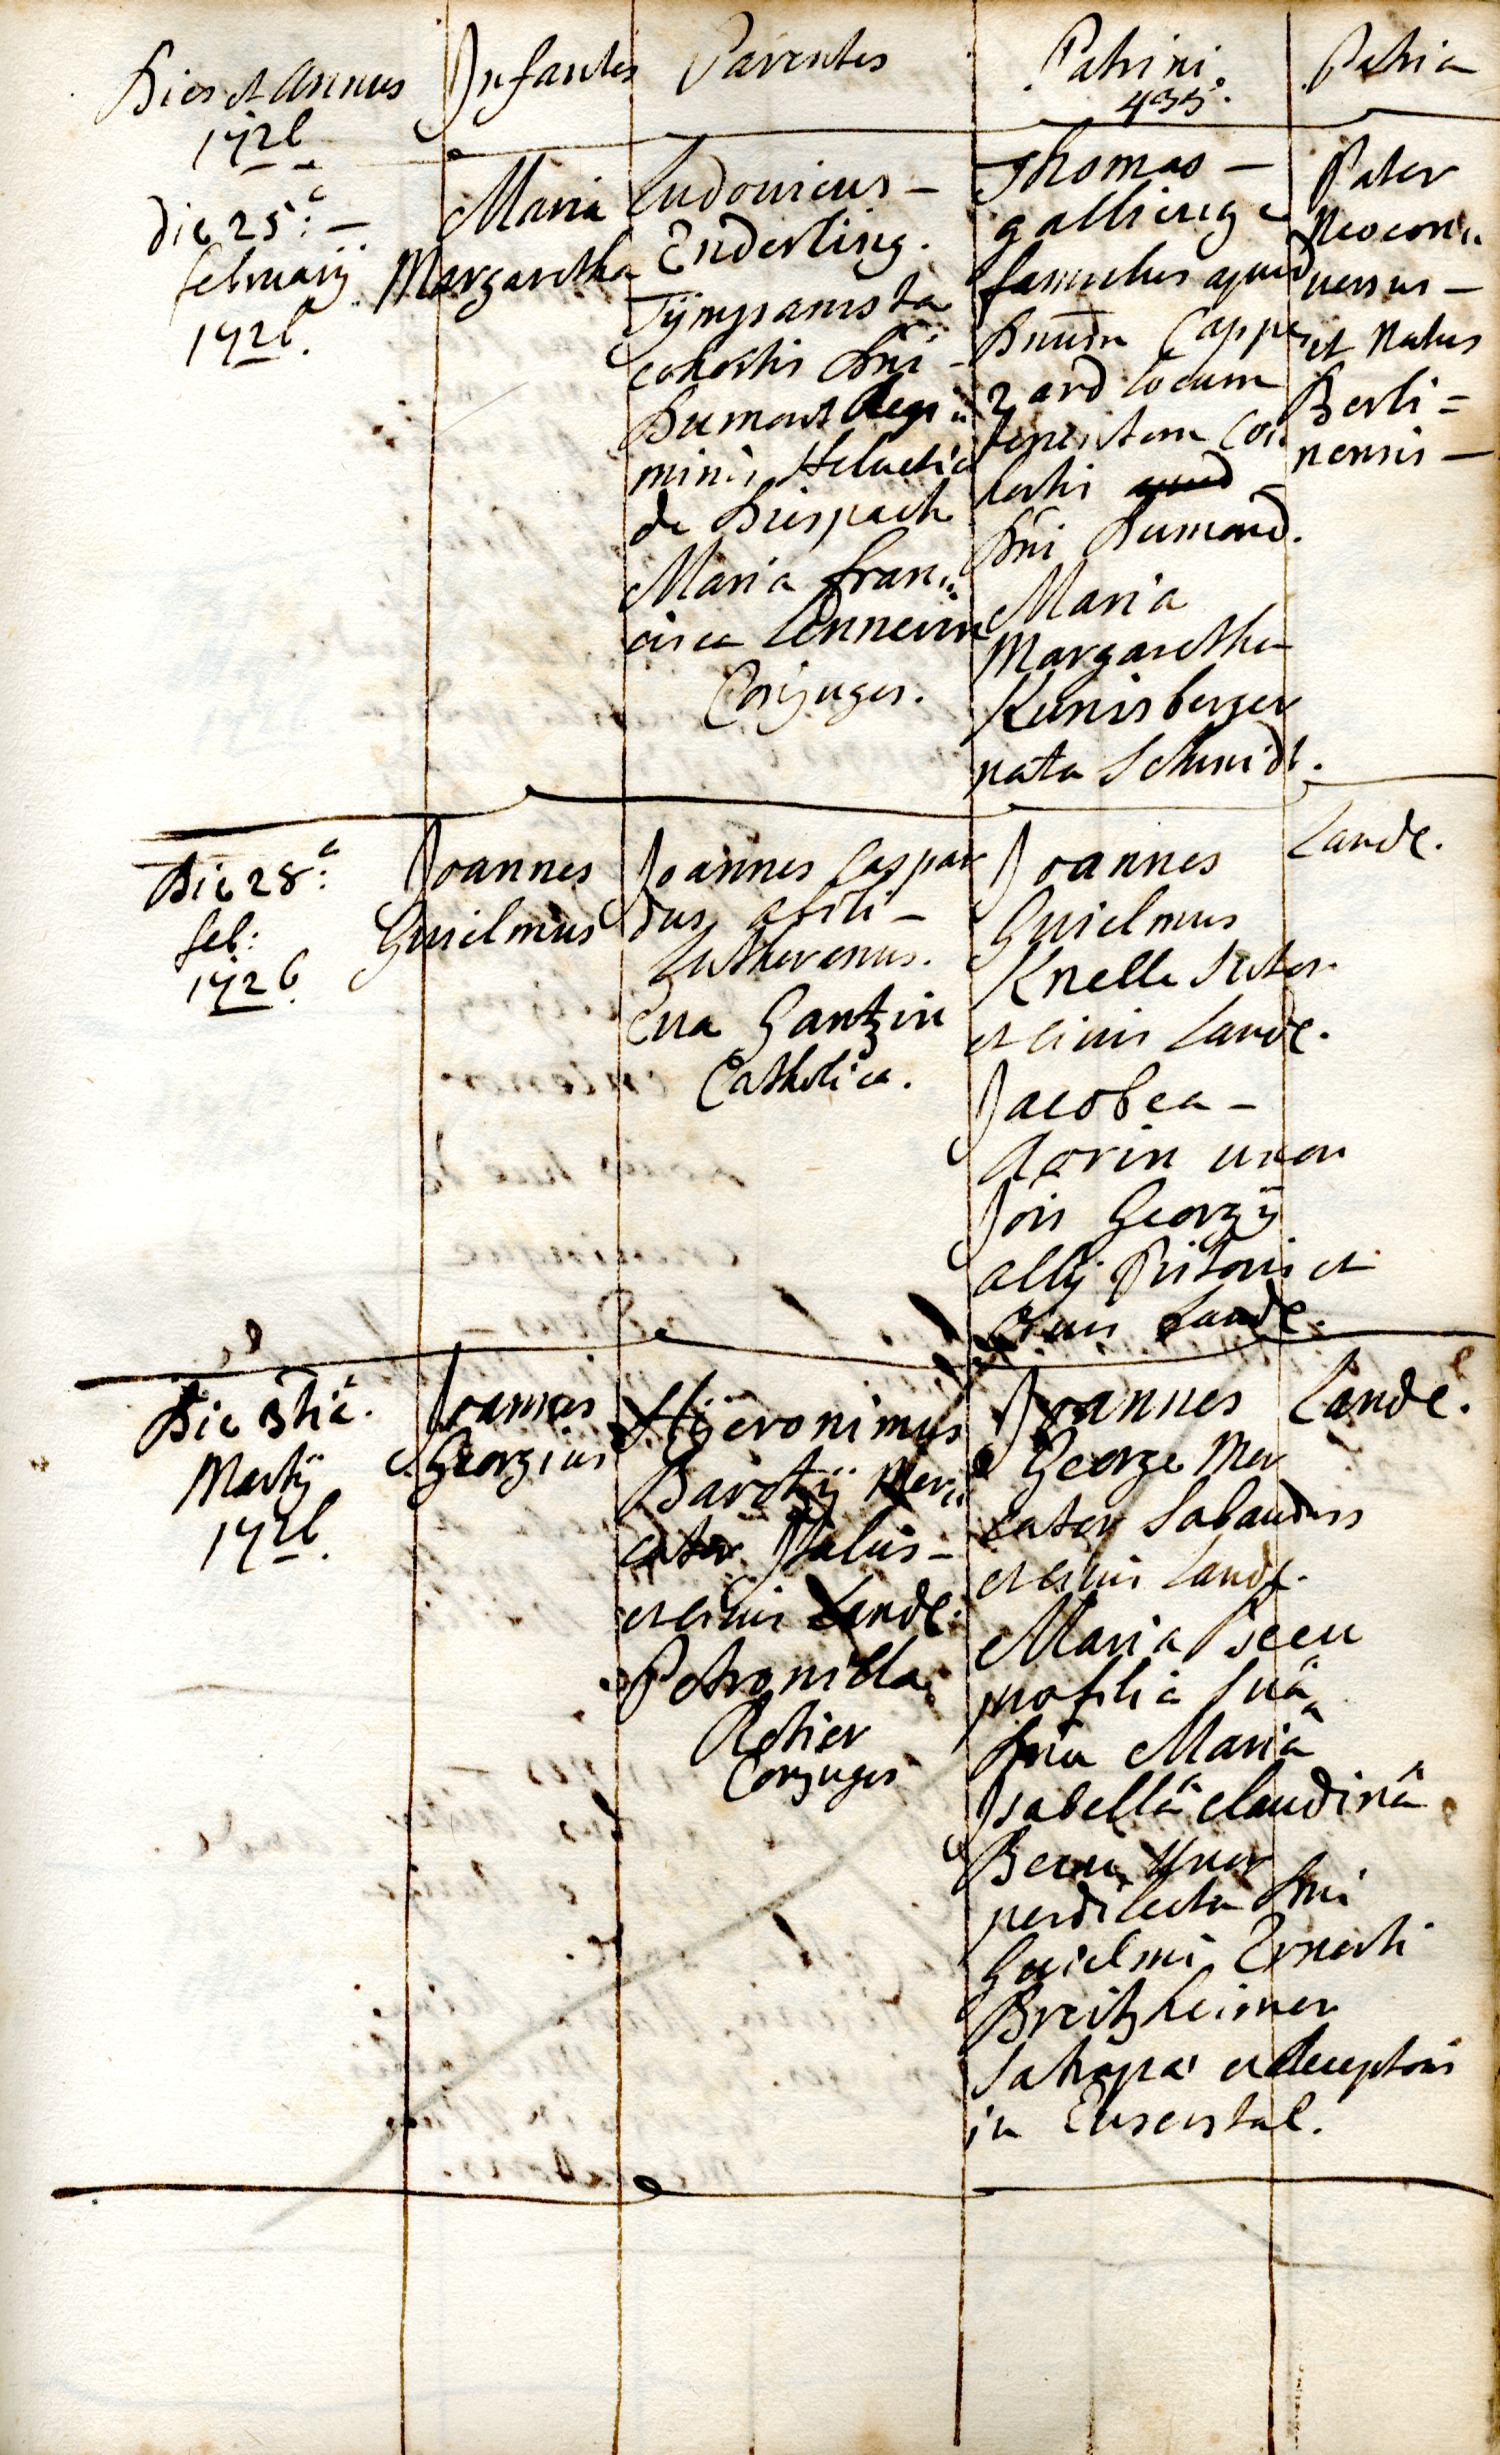 Dies et Annus
1726
Infantes
Parentes
Patrini.
435.
Patria
Die 25:a –
februarij
1726.
Maria
Margaretha
Ludovicus –
Enderling.
Tÿmpanista
cohortis Dni –
Dumont Regi„
minis Helvetici
de Diespach
Maria fran„
cisca
Conjuges.
Thomas –
famulus apud
Dnum Cappe
zard locum
tenentem Co„
hortis apud –
Dni Dumond.
Maria
Margaretha
Kunisberger
nata Schmidt.
Pater
Neocon„
versus –
et Natus
Berli=
nensis –
Die 28:a
feb:
1726
Joannes
Guielmus
Joannes Caspar
dus
Lutheranus.
Eva Gantzin
Catholica.
Joannes
Guielmus
Knelle Sutor
et civis Landę.
Jacobea –
uxor
Jois Georgÿ
Pistoris et
Civis Landę.
Landę.
Die 3tiâ.
Martÿ
1726.
Joannes
Georgius
Hÿeronimus
Barotÿ Mer„
cator Italus –
et civis Landę.
Petronilla
Conjuges
Joannes
George Mer
cator Sabaudus
et civis Landę.
Maria
pro filia suâ
Dna Mariâ
Isabellâ Claudinâ
Uxor
perdilecta Dni
Guielmi Ernesti
Breitzheimer
Satrapae et Receptoris
in Euserstal.
Landę.